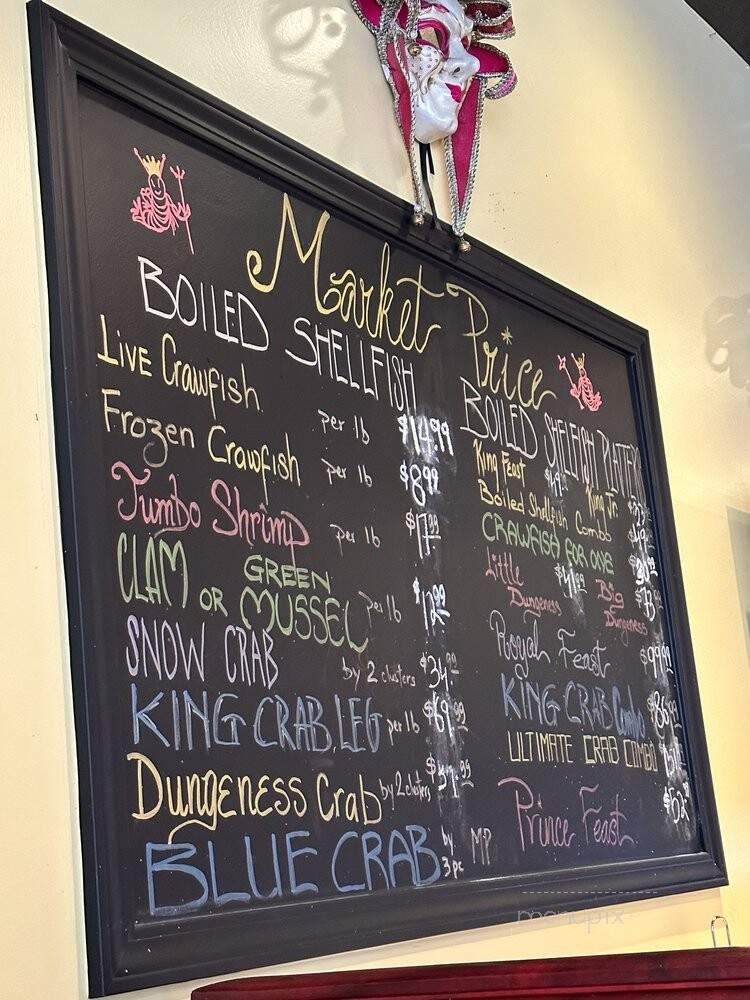 Market Price
BOILED SHELLFISH
Live Crawfish per lb $14.99
Frozen Crawfish per lb $8.99
Jumbo Shrimp per lb $17.99
CLAM OR GREEN MUSSEL per lb $12.99
SNOW CRAB by 2 clusters $34.99
KING CRAB LEG per lb $69.99
Dungeness Crab by 2 clusters
BLUE CRAB by 3 pc MP
BOILED SHELFISH PLATTER
King Feast King Jr
Boiled Shellfish Combo
CRAWFISH FOR ONE
Little Dungeness Big Dungeness
Royal Feast $99.99
KING CRAB Combo $86
ULTIMATE CRAB COMBO
Prince Feast
menupix